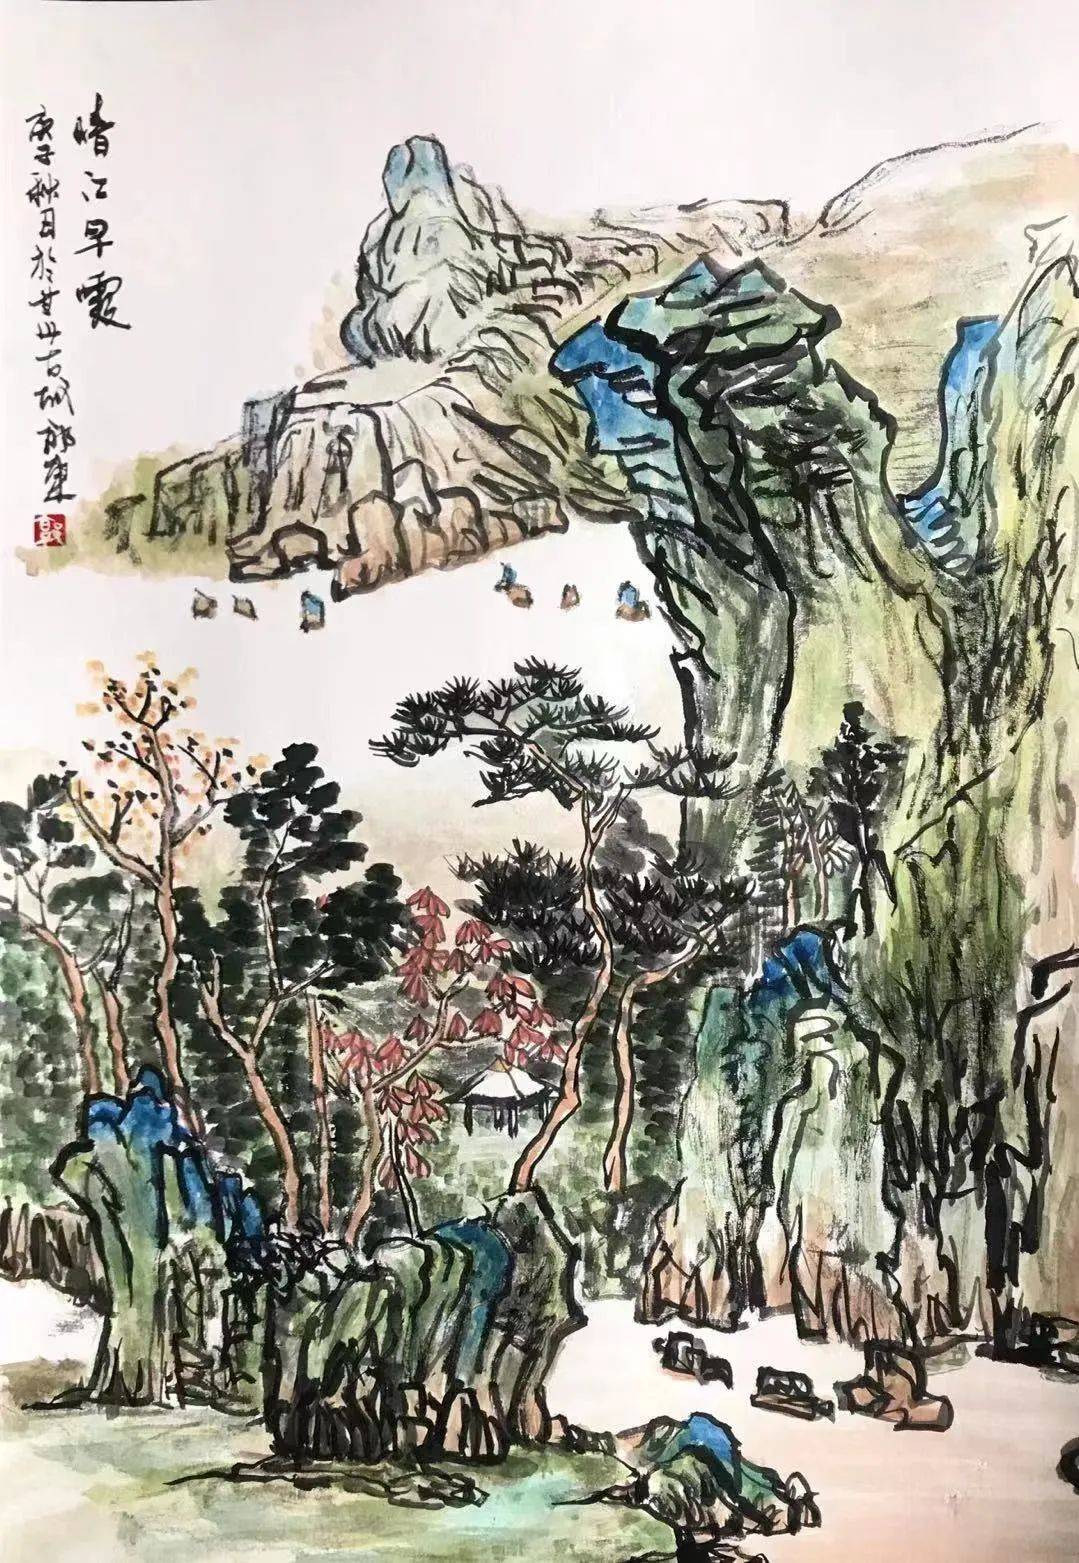 晴江早霞
庚子秋日於甘州古城